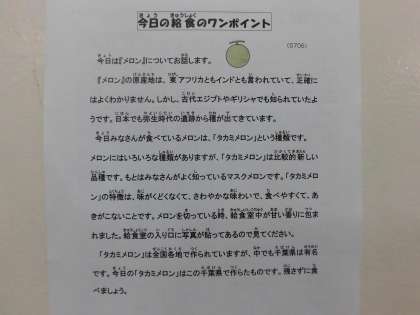 今日の給食のワンポイント
(0706)
今日は『メロン』についてお話します。
『メロン』の原産地は、東アフリカともインドとも言われていて、正確に
はよくわかりません。しかし、古代エジプトやギリシャでも知られていたよ
うです。日本でも弥生時代の遺跡から種が出てきています。
今日みなさんが食べているメロンは、「タカミメロン」という種類です。
メロンにはいろいろな種類がありますが、「タカミメロン」は比較的新しい
品種です。もとはみなさんがよく知っているマスクメロンです。「タカミメロ
ン」の特徴は、味がくどくなくて、さわやかな味わいで、食べやすくて、あ
きがこないことです。メロンを切っている時、給食室中が甘い香りに包ま
れました。給食室の入り口に写真が貼ってあるので見てください。
「タカミメロン」は全国各地で作られていますが、中でも千葉県は有名
です。今日の「タカミメロン」はこの千葉県で作られたものです。残さずに食
べましょう。